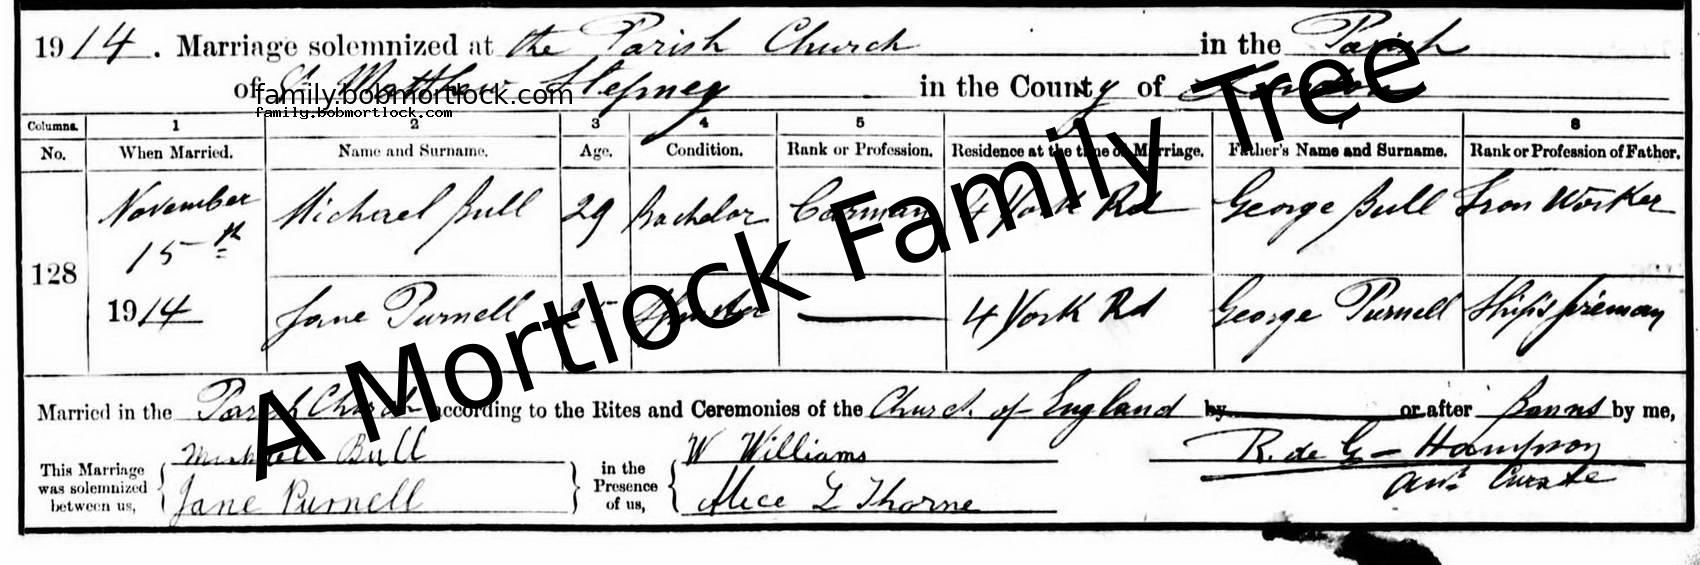 1914. Marriage solemnized at the Parish Church in the Parish
of St Matthew Stepney in the County of London
family.bobmortlock.com
family.bobmortlock.com
Columns. 1 2 3 4 5 7 8
No. When Married. Name and Surname. Age. Condition. Rank or Profession. Residence at the time of Marriage. Father's Name and Surname. Rank or Profession of Father.
128 November 15th 1914 Michael Bull 29 Bachelor Carman 4 York Rd George Bull Iron Worker
Jane Purnell 25 Spinster 4 York Rd George Purnell Ship's fireman
A Mortlock Family Tree
Married in the Parish Church according to the Rites and Ceremonies of the Church of England by or after Banns by me,
This Marriage was solemnized between us, Michael Bull Jane Purnell in the Presence of us, W Williams Alice L Thorne R. de G- Hampson
Curate